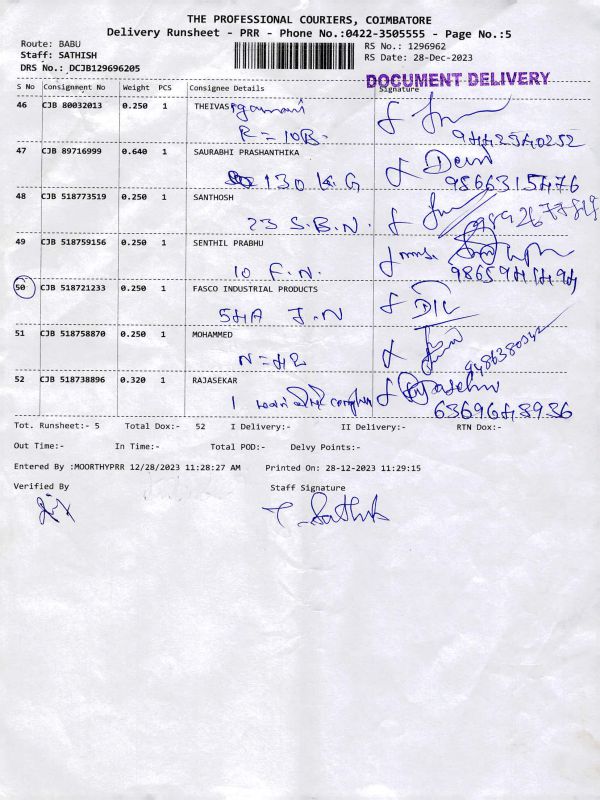 THE PROFESSIONAL COURIERS, COIMBATORE
Delivery Runsheet - PRR - Phone No.:0422-3505555 - Page No.:5
Route: BABU
RS No.: 1296962
Staff: SATHISH
RS Date: 28-Dec-2023
DRS No.: DCJB129696205
DOCUMENT DELIVERY
S No Consignment No Weight PCS Consignee Details Signature
46 CJB 80032013 0.250 1 THEIVAS
R = 10B.
9442540252
47 CJB 89716999 0.640 1 SAURABHI PRASHANTHIKA
130 K.G
9566315476
48 CJB 518773519 0.250 1 SANTHOSH
23 S.B.N.
49 CJB 518759156 0.250 1 SENTHIL PRABHU
10 F.N.
50 CJB 518721233 0.250 1 FASCO INDUSTRIAL PRODUCTS
54A J.N
51 CJB 518758870 0.250 1 MOHAMMED
N = 42
9486380342
52 CJB 518738896 0.320 1 RAJASEKAR
6369648936
Tot. Runsheet:- 5 Total Dox:- 52 I Delivery:- II Delivery:- RTN Dox:-
Out Time:- In Time:- Total POD:- Delvy Points:-
Entered By :MOORTHYPRR 12/28/2023 11:28:27 AM Printed On: 28-12-2023 11:29:15
Verified By Staff Signature
T. Sathish